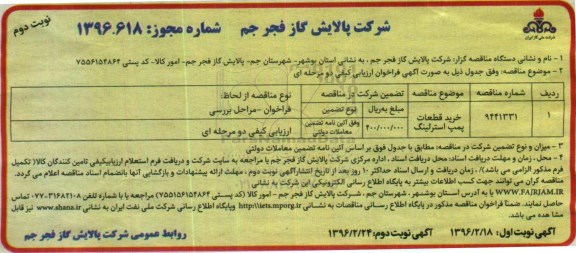 نوبت دوم
شرکت پالایش گاز فجر جم شماره مجوز: ۱۳۹۶.۶۱۸
شرکت ملی گاز ایران
۱ - نام و نشانی دستگاه مناقصه گزار: شرکت پالایش گاز فجر جم، به نشانی استان بوشهر- شهرستان جم- پالایش گاز فجر جم- امور کالا- کد پستی ۷۵۵۶۱۵۴۸۶۲
۲ - موضوع مناقصه: وفق جدول ذیل به صورت آگهی فراخوان ارزیابی کیفی دو مرحله ای
ردیف شماره مناقصه موضوع مناقصه تضمین شرکت در مناقصه نوع مناقصه از لحاظ:
مبلغ به ریال نوع تضمین فراخوان -مراحل بررسی
۱ ۹۴۴۱۳۳۱ خرید قطعات پمپ استرلینگ ۴۰۰/۰۰۰/۰۰۰ وفق آئین نامه تضمین معاملات دولتی ارزیابی کیفی دو مرحله ای
۳ - میزان و نوع تضمین شرکت در مناقصه: مطابق با جدول فوق بر اساس آئین نامه تضمین معاملات دولتی
۴ - محل، زمان و مهلت دریافت اسناد: محل دریافت اسناد ، اداره مرکزی شرکت پالایش گاز فجر جم با مراجعه به سایت شرکت و دریافت فرم استعلام ارزیابی کیفی تامین کنندگان کالا( تکمیل
فرم مذکور الزامی می باشد)/ زمان دریافت و ارسال اسناد حداکثر ۱۰ روز بعد از تاریخ انتشار آگهی نوبت دوم ، مهلت ارائه پیشنهادات و بازگشایی آنها بانضمام اسناد مناقصه اعلام می گردد.
مناقصه گران می توانند جهت کسب اطلاعات بیشتر به پایگاه اطلاع رسانی الکترونیکی این شرکت به نشانی
WWW.FAJRJAM.IR یا به آدرس استان بوشهر ، شهرستان جم، شرکت پالایش گاز فجر جم - امور کالا (کد پستی ۷۵۵۱۵۶۱۵۴۸۶۲) مراجعه یا با شماره تلفن ۳۱۶۸۲۱۰۸-۰۷۷ تماس
حاصل نمایند. ضمناً فراخوان مناقصه مذکور در پایگاه اطلاع رسانی مناقصات به نشانی http:\\iets.mporg.ir وپایگاه اطلاع رسانی شرکت ملی نفت ایران به نشانی www.shana.ir نیز قابل
مشاهده می باشد.
آگهی نوبت اول: ۱۳۹۶/۲/۱۸ آگهی نوبت دوم: ۱۳۹۶/۲/۲۴ روابط عمومی شرکت پالایش گاز فجر جم